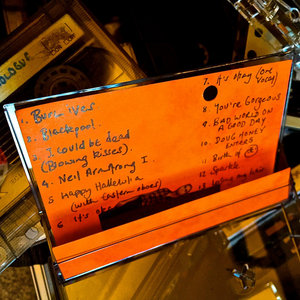 1. Bumblebees
2. Blackpool.
3. I could be dead
(Blowing kisses).
4. Neil Armstrong I.
5 Happy Hallelulia
(with Easter shoes)
6 It's oka
7. It's okay (one
Vocal)
8. You're Gorgeous
9. BAD WORLD ON
A GOOD DAY
10. DOUG HONEY
ENTERS
11 Birth of
12 Sparkle
13 my hair